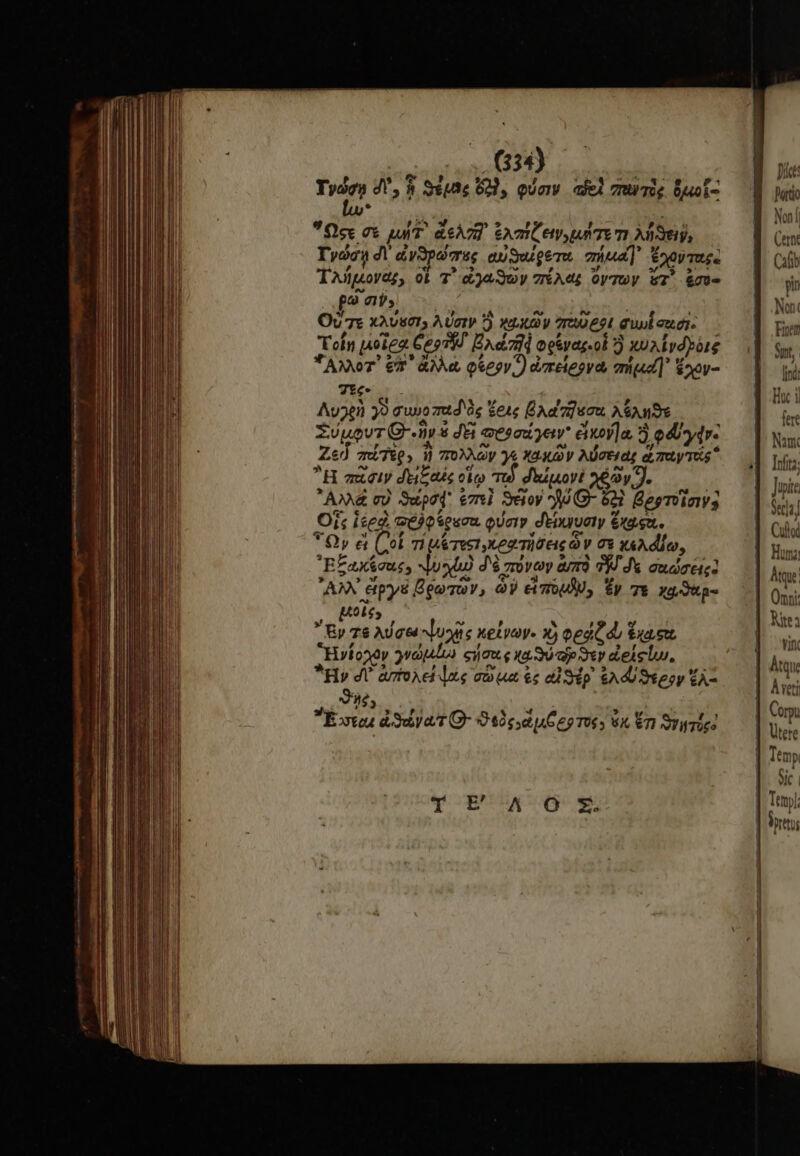 (334)
Γνώσῃ δ', ᾗ θέμις ἐστὶ, φύσιν περὶ παντὸς ὁμοί-
ην·
Ὥστε σε μήτ' ἄελπτ' ἐλπίζειν, μήτε τι λήθειν,
Γνώσῃ δ' ἀνθρώπους αὐθαίρετα πήματ' ἔχοντας.
Τλήμονας, οἵ τ' ἀγαθῶν πέλας ὄντων οὔτ' ἐσο-
ρῶσιν,
Οὔτε κλύουσι, λύσιν ἢ κακῶν παῦροι συνίσασι.
Τοίη μοῖρα βροτῶν βλάπτει φρένας. οἱ ἢ κυλίνδροις
Ἄλλοτ' ἐπ' ἄλλα φέρονται ἀπείρονα πήματ' ἔχον-
τες.
Λυγρὴ γὸ συνοπαδὸς ἔρις βλάπτουσα λέληθε
Σύμφυτος. ἣν οὐ δεῖ προσάγειν· εἴκοντα ἢ φεύγειν.
Ζεῦ πάτερ, ἢ πολλῶν γε κακῶν λύσειας ἅπαντας·
Ἢ πᾶσιν δείξαις οἵῳ τῷ δαίμονι χρῶνται.
Ἀλλὰ σὺ θάρσει· ἐπεὶ θεῖον γένος ἐστὶ βροτοῖσιν,
Οἷς ἱερὰ προφέρουσα φύσιν δείκνυσιν ἕκαστα.
Ὧν εἰ σοί τι μέτεστι, κρατήσεις ὧν σε κελεύω,
Ἐξακέσας, ψυχὴν δὲ πόνων ἀπὸ τῶν δε σαώσεις.
Ἀλλ' εἴργου βρωτῶν, ὧν εἴπομεν, ἔν τε καθαρ-
μοῖς,
Ἔν τε λύσει ψυχῆς κρίνων. καὶ φράζευ ἕκαστα
Ἡνίοχον γνώμην στήσας καθύπερθεν ἀρίστην.
Ἢν δ' ἀπολείψας σῶμα ἐς αἰθέρ' ἐλεύθερον ἔλ-
θῃς,
Ἔσσεαι ἀθάνατος θεὸς, ἄμβροτος, οὐκ ἔτι θνητός.
ΤΕ'ΛΟΣ.
Atque
Rite
Atque
Utere
Sic
Spretus